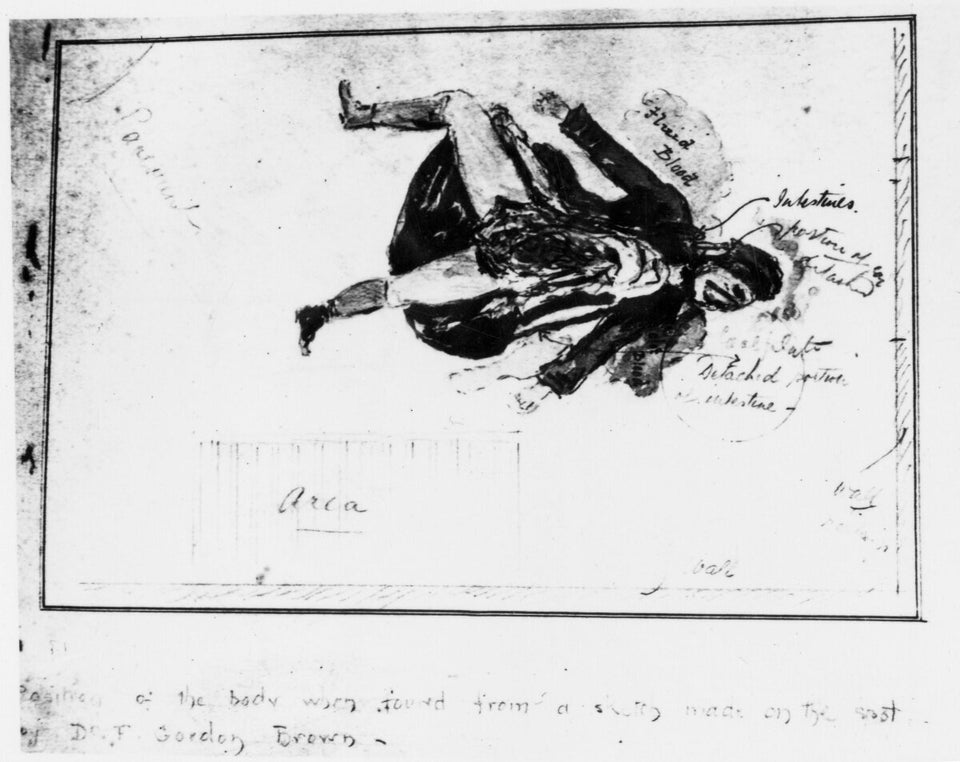 Pavement
Fluid
Blood
Intestines.
portion of ear
detached
Detached portion
of intestine -
Area
wall
wall
Position of the body when found from a sketch made on the spot
by Dr. F. Gordon Brown -